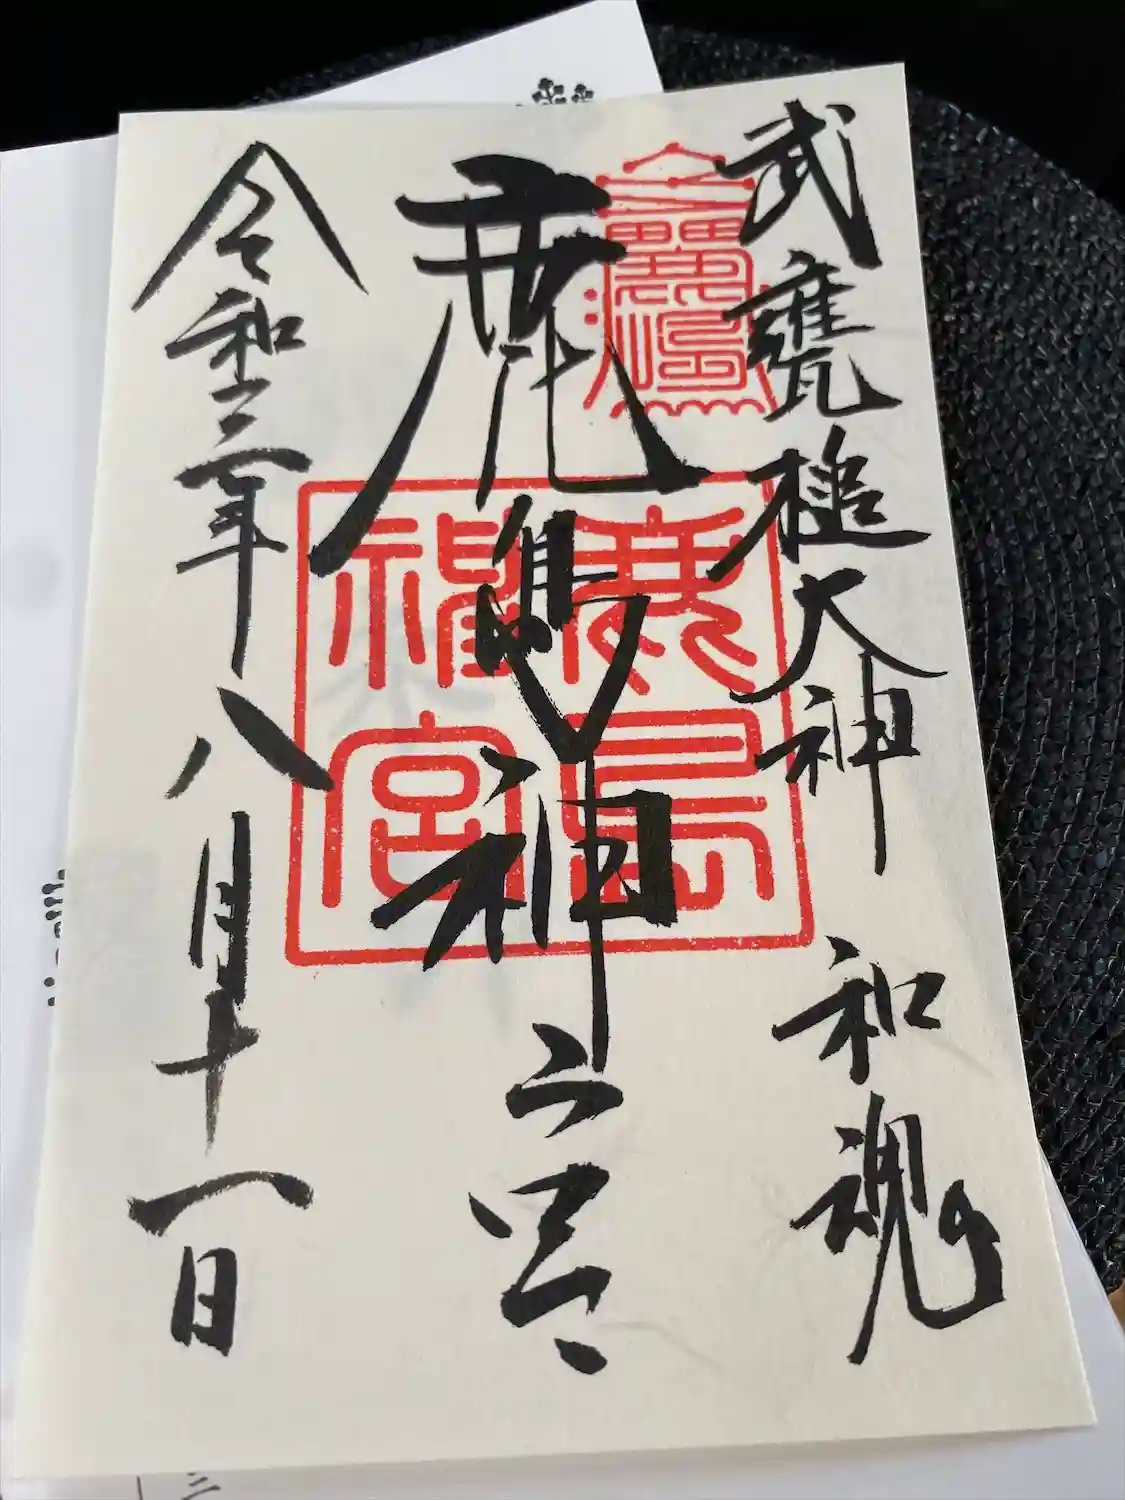 武甕槌大神 和魂
鹿島神宮
令和三年八月十一日
鹿島
神宮
三